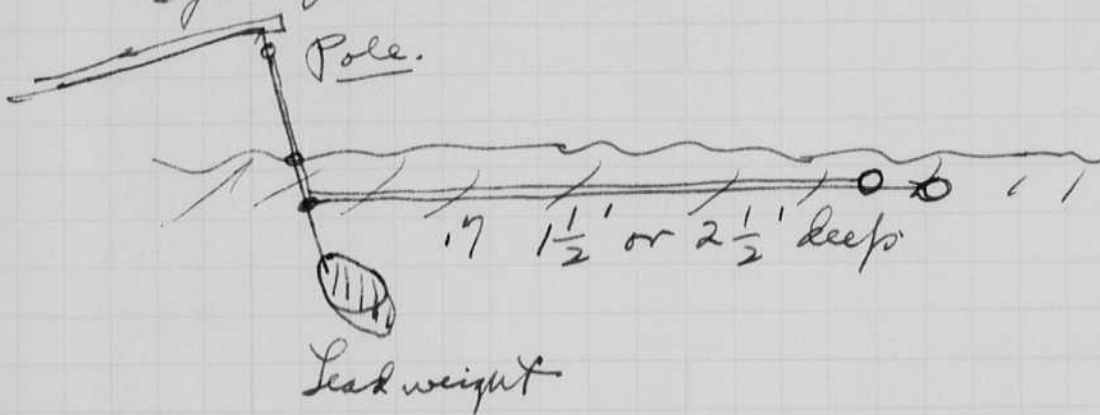 Pole.
1½' or 2½' deep
Lead weight